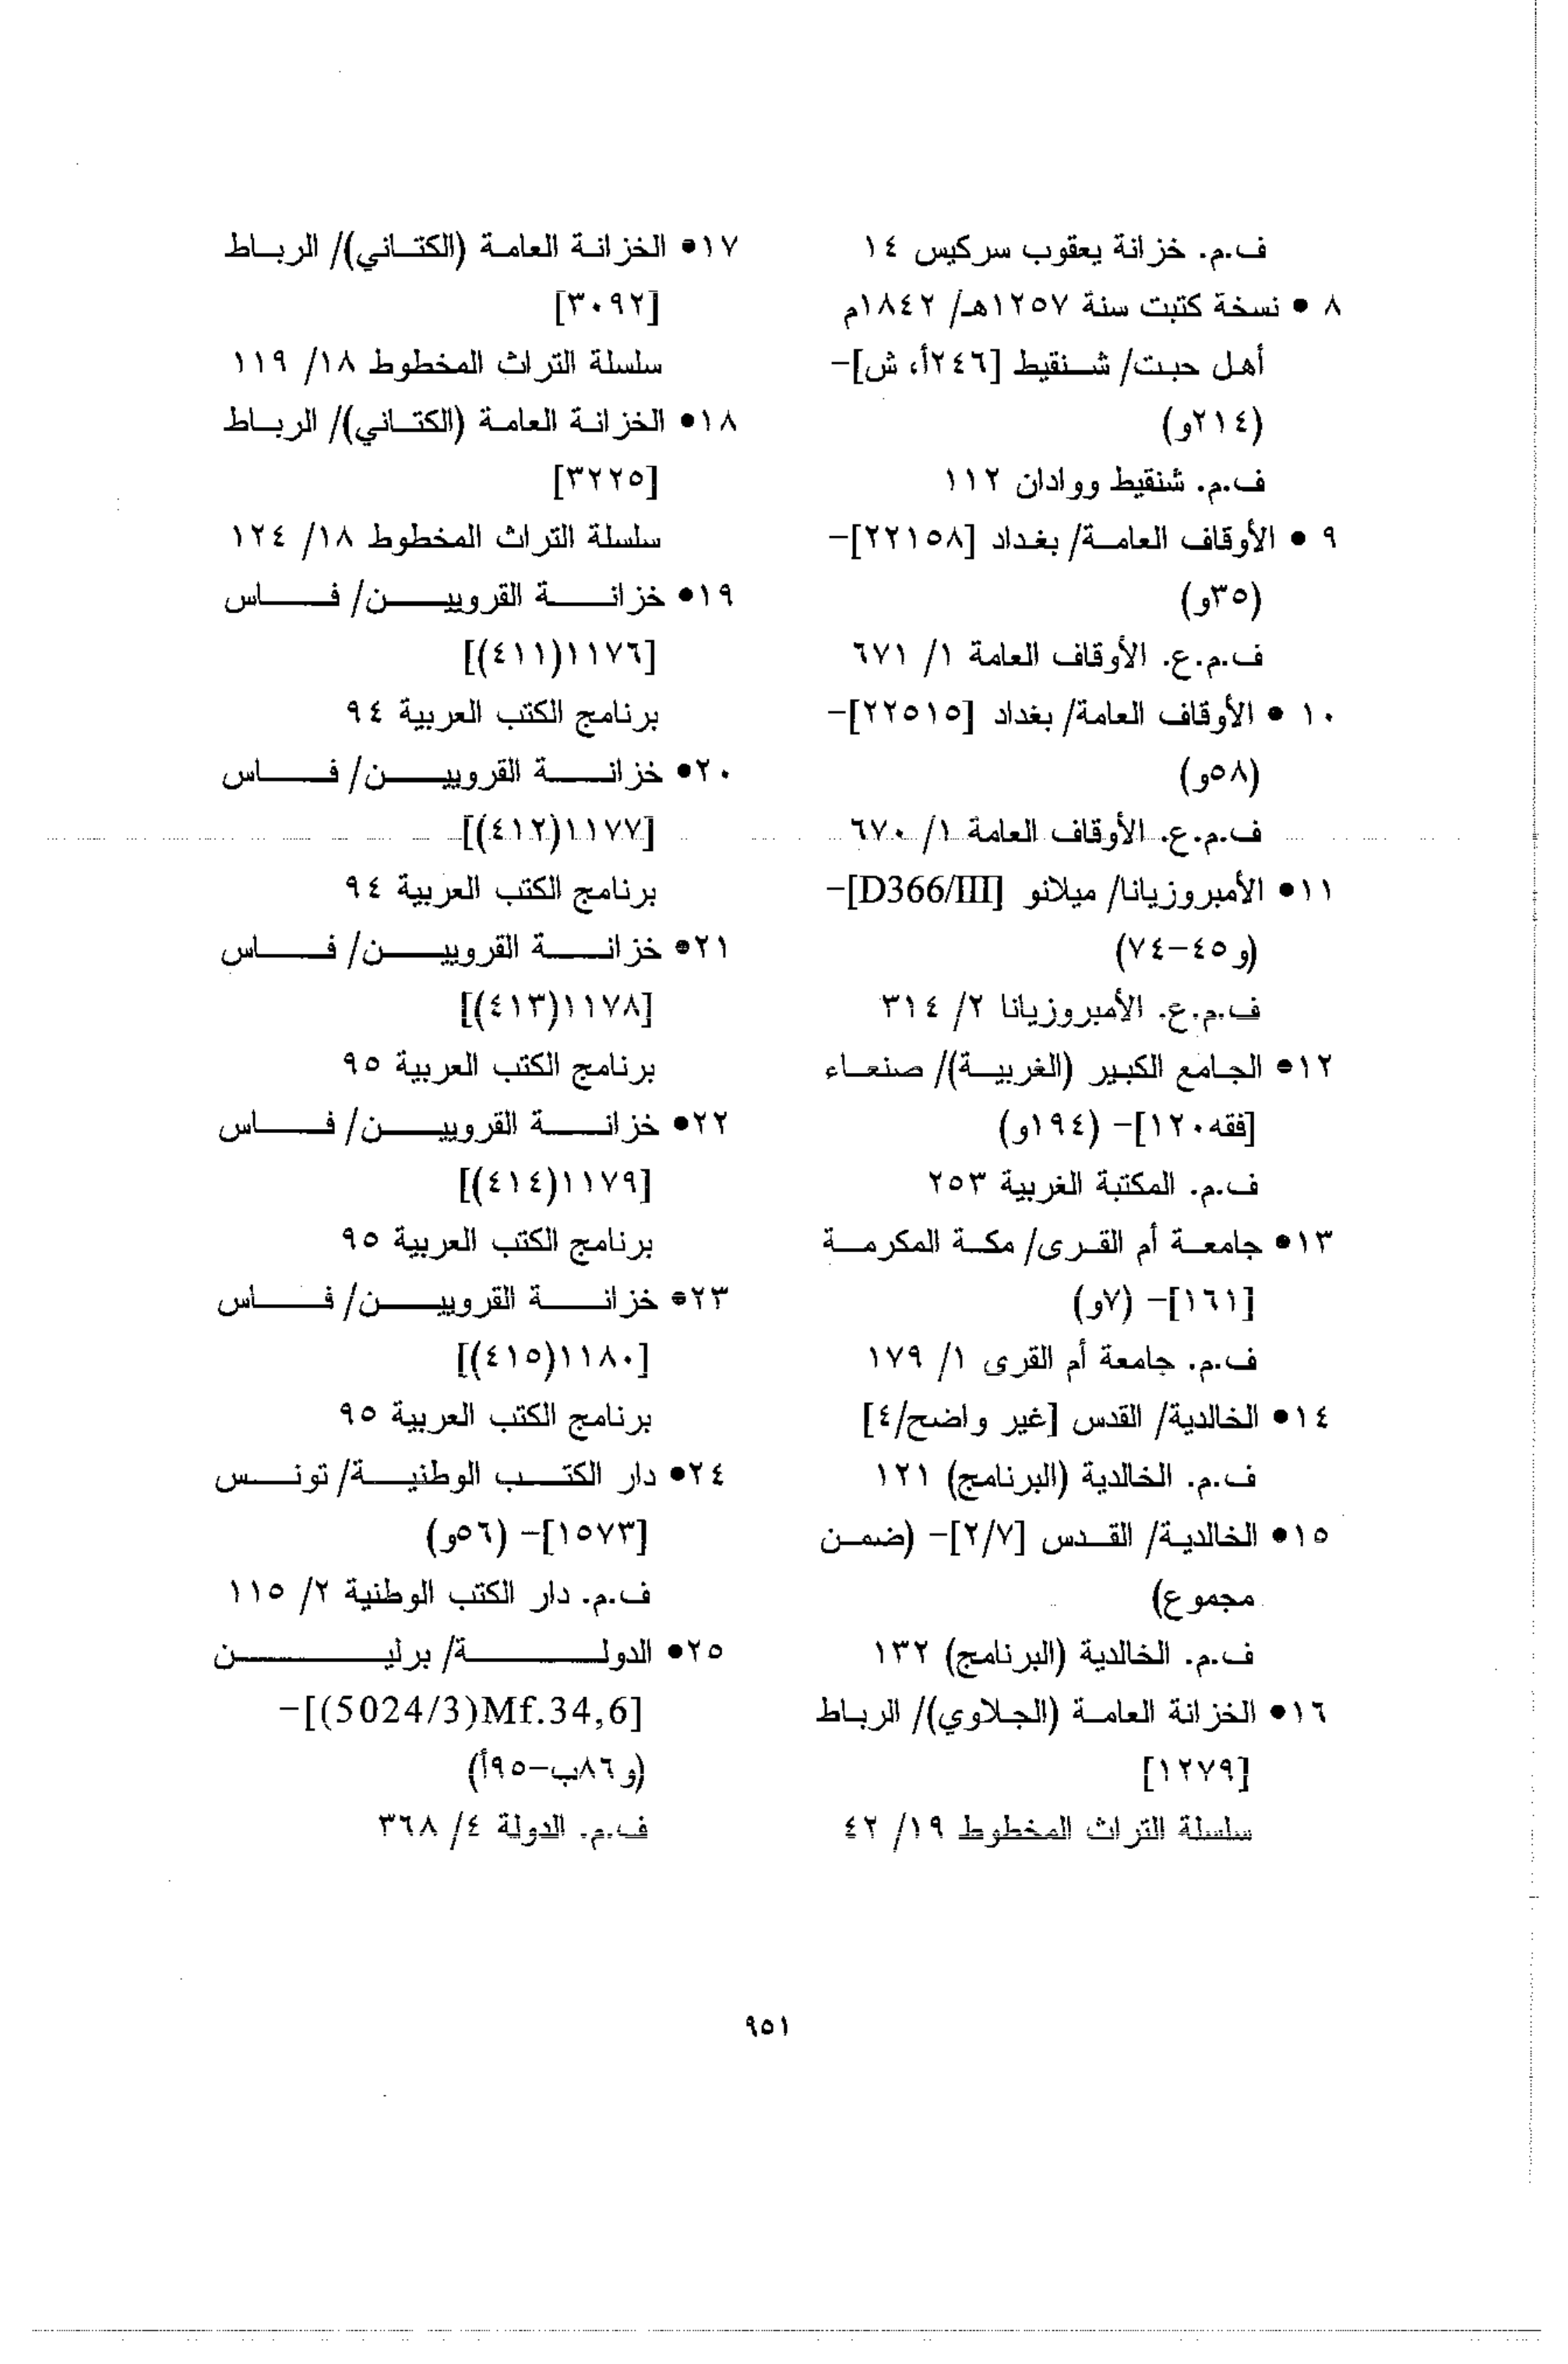 ف.م. خزانة يعقوب سركيس ١٤
٨ • نسخة كتبت سنة ١٢٥٧هـ/ ١٨٤٢م
أهل حبت/ شنقيط [٢٤٦أ، ش]-
(٢١٤و)
ف.م. شنقيط ووادان ١١٢
٩ • الأوقاف العامة/ بغداد [٢٢١٥٨]-
(٣٥و)
ف.م.ع. الأوقاف العامة ١/ ٦٧١
١٠ • الأوقاف العامة/ بغداد [٢٢٥١٥]-
(٥٨و)
ف.م.ع. الأوقاف العامة ١/ ٦٧٠
١١• الأمبروزيانا/ ميلانو [D366/III]-
(و٤٥-٧٤)
ف.م.ع. الأمبروزيانا ٢/ ٣١٤
١٢• الجامع الكبير (الغربية)/ صنعاء
[فقه١٢٠]- (١٩٤و)
ف.م. المكتبة الغربية ٢٥٣
١٣• جامعة أم القرى/ مكة المكرمة
[١٦١]- (٧و)
ف.م. جامعة أم القرى ١/ ١٧٩
١٤• الخالدية/ القدس [غير واضح/٤]
ف.م. الخالدية (البرنامج) ١٢١
١٥• الخالدية/ القدس [٢/٧]- (ضمن
مجموع)
ف.م. الخالدية (البرنامج) ١٣٢
١٦• الخزانة العامة (الجلاوي)/ الرباط
[١٢٧٩]
سلسلة التراث المخطوط ١٩/ ٤٢
١٧• الخزانة العامة (الكتاني)/ الرباط
[٣٠٩٢]
سلسلة التراث المخطوط ١٨/ ١١٩
١٨• الخزانة العامة (الكتاني)/ الرباط
[٣٢٢٥]
سلسلة التراث المخطوط ١٨/ ١٢٤
١٩• خزانة القرويين/ فاس
[١١٧٦(٤١١)]
برنامج الكتب العربية ٩٤
٢٠• خزانة القرويين/ فاس
[١١٧٧(٤١٢)]
برنامج الكتب العربية ٩٤
٢١• خزانة القرويين/ فاس
[١١٧٨(٤١٣)]
برنامج الكتب العربية ٩٥
٢٢• خزانة القرويين/ فاس
[١١٧٩(٤١٤)]
برنامج الكتب العربية ٩٥
٢٣• خزانة القرويين/ فاس
[١١٨٠(٤١٥)]
برنامج الكتب العربية ٩٥
٢٤• دار الكتب الوطنية/ تونس
[١٥٧٣]- (٥٦و)
ف.م. دار الكتب الوطنية ٢/ ١١٥
٢٥• الدولة/ برلين
[(5024/3)Mf.34,6]-
(و٨٦ب-٩٥أ)
ف.م. الدولة ٤/ ٣٦٨
٩٥١